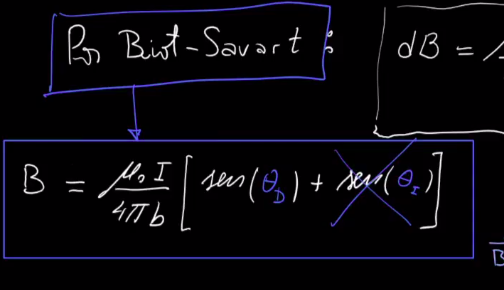 Por Biot-Savart :
dB =
B = μ₀ I / 4πb [ sen(θ_D) + sen(θ_I) ]
B